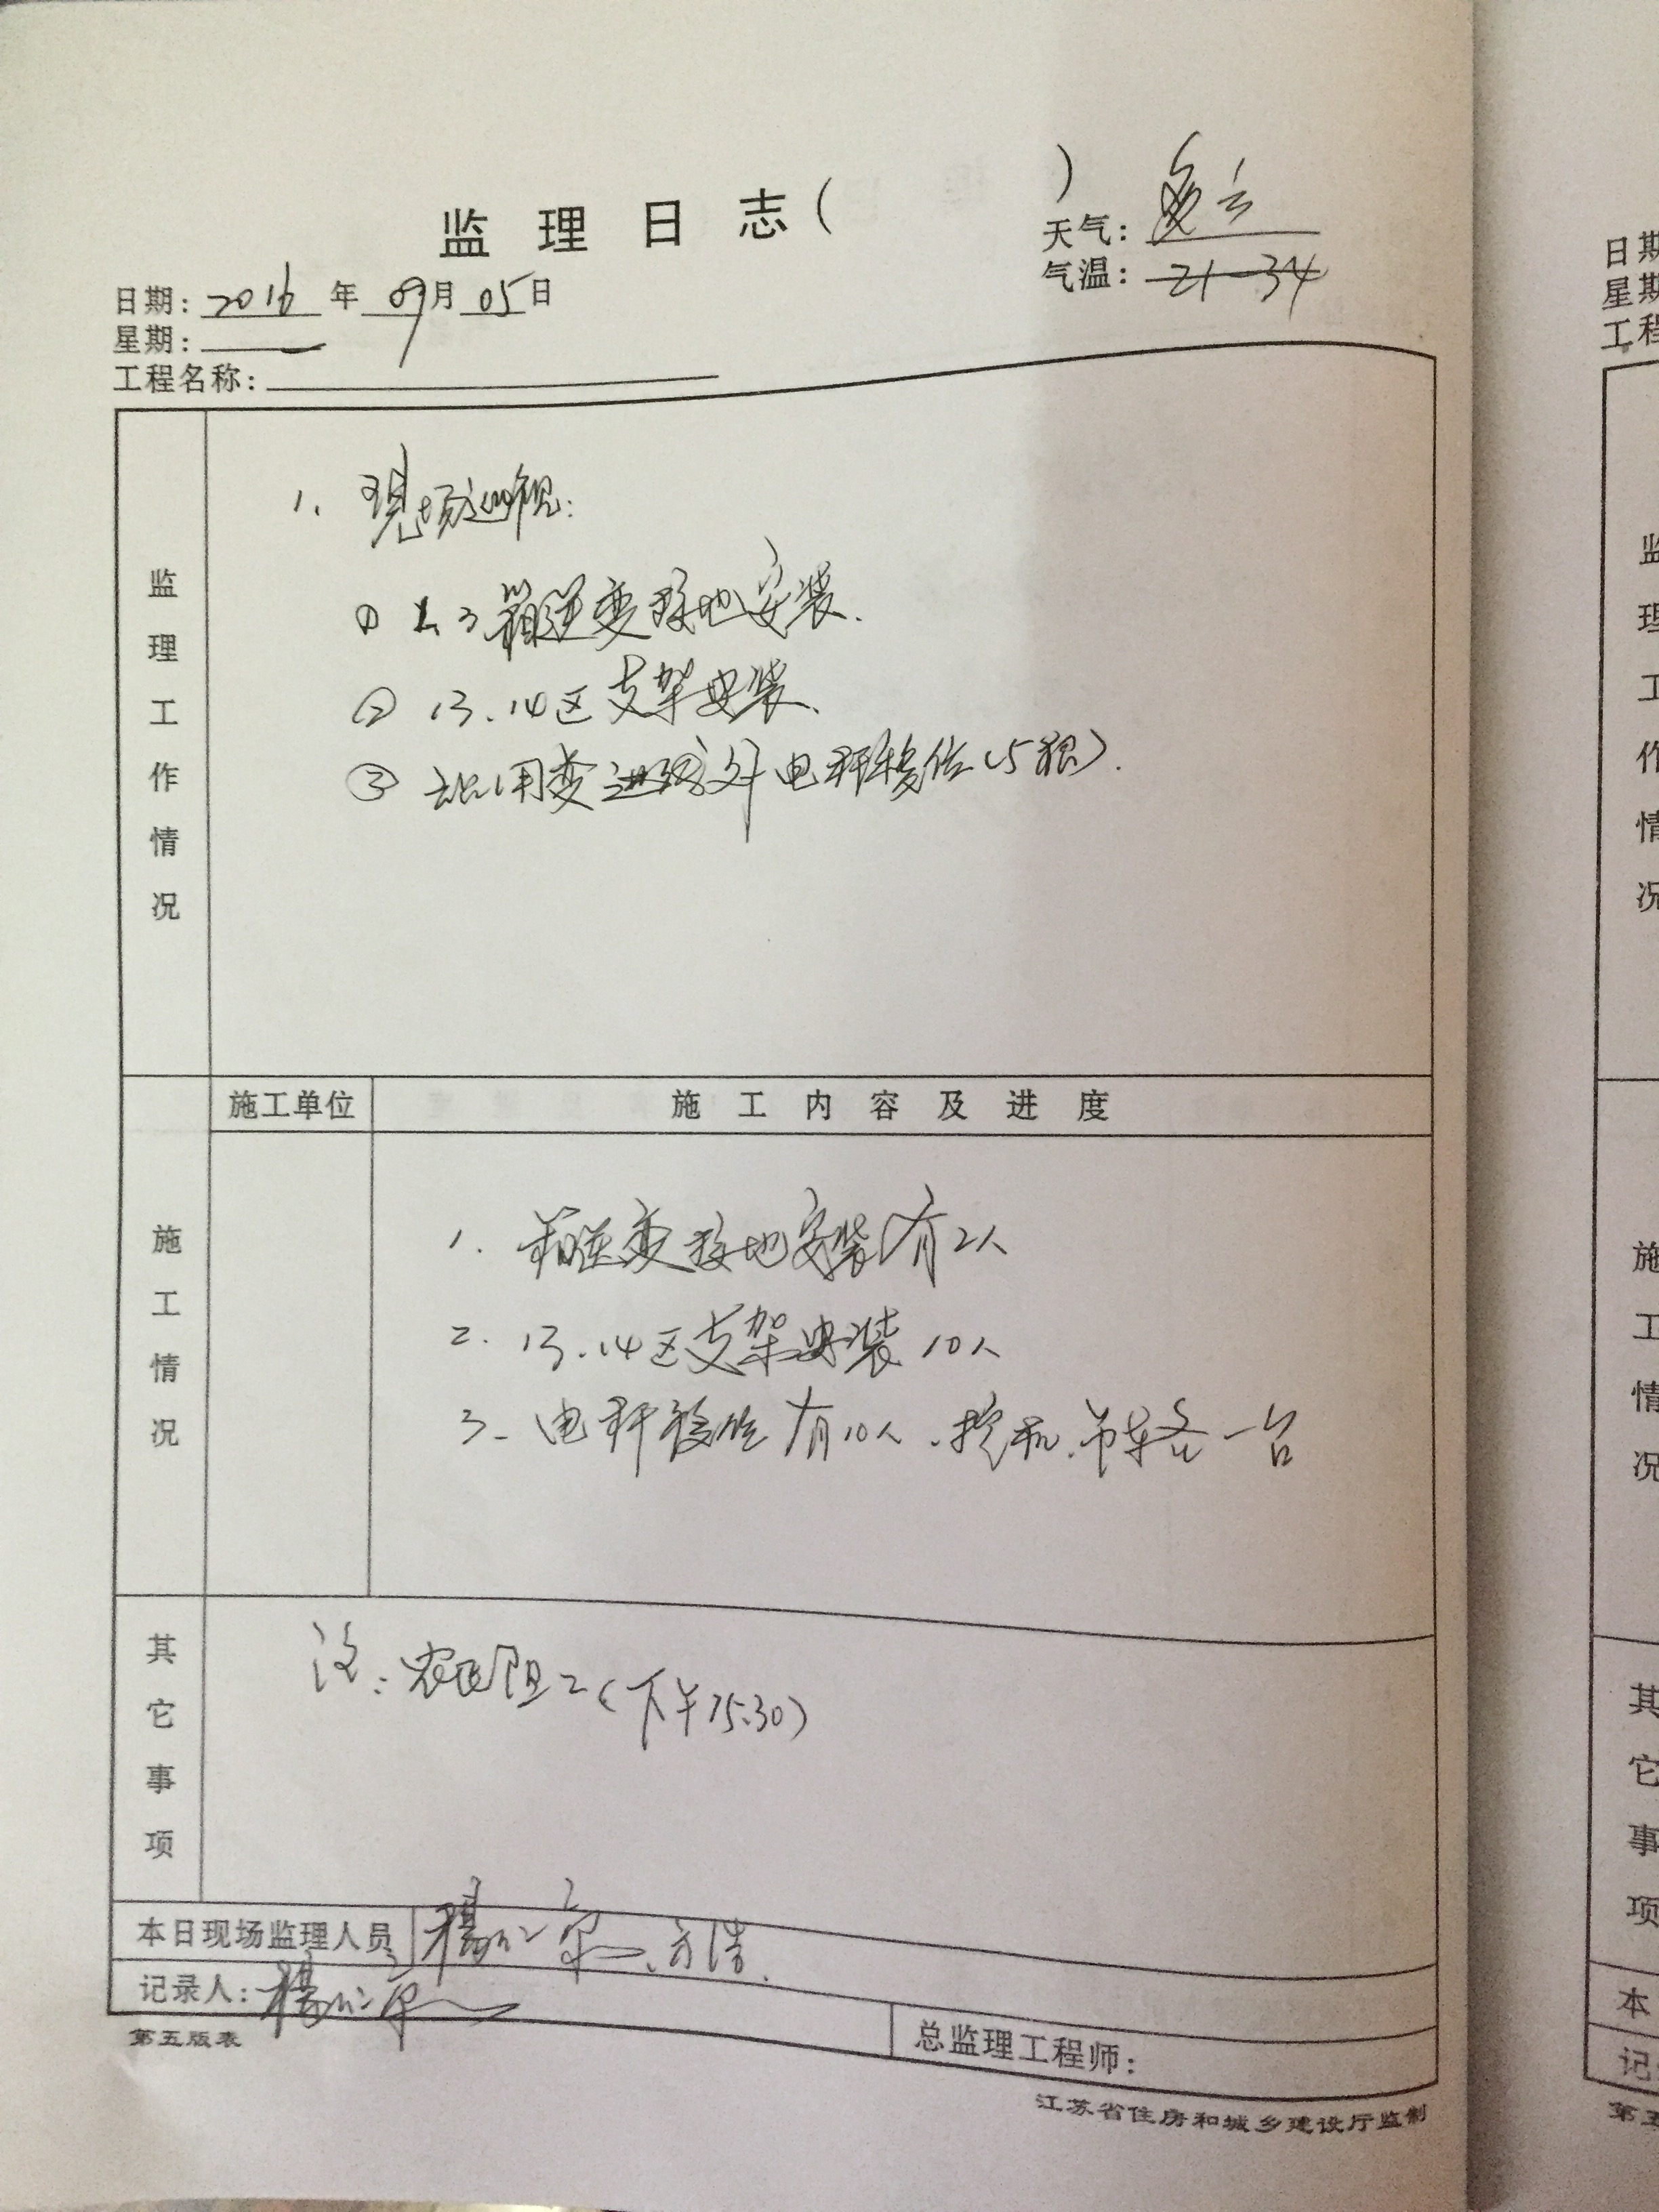 监理日志( )
天气: 多云
气温: 21-34
日期: 2016 年 09月 05日
星期: 一
工程名称:
监理工作情况
1、现场巡视:
① 箱逆变接地安装.
② 13、14区支架安装.
③ 站用变进线 电杆移位(5根).
施工单位 施工内容及进度
施工情况
1. 箱逆变接地安装有2人
2. 13、14区支架安装10人
3、电杆移位有10人、挖机、吊车各一台
其它事项
注: 农民阻工(下午15:30)
本日现场监理人员 杨 、方浩.
记录人: 杨
总监理工程师:
第五版表
江苏省住房和城乡建设厅监制
日期
星期
工程
监理工作情况
施工情况
其它事项
本
记
第五